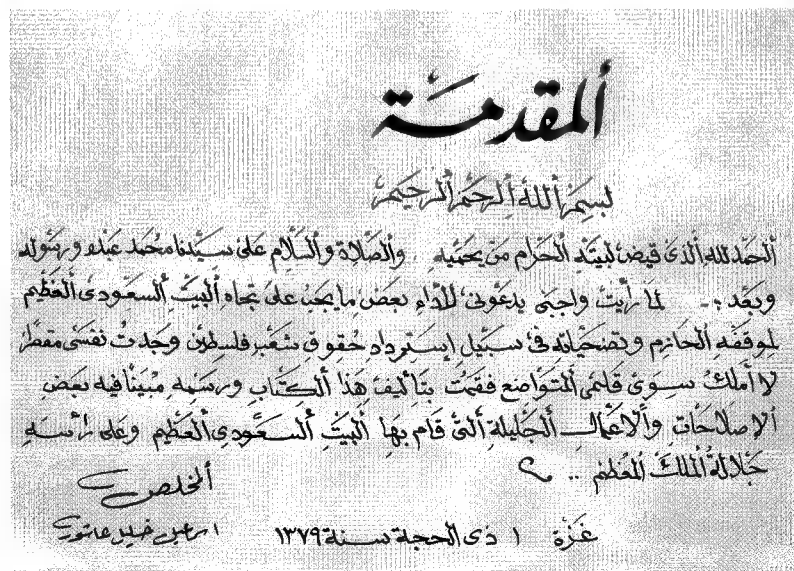 المقدمة
بسم الله الرحمن الرحيم
الحمد لله الذي قيض لبيته الحرام من يحميه . والصلاة والسلام على سيدنا محمد عبده ورسوله
وبعد : - لما رأيت واجبي يدعوني للأداء بعض ما يجب على تجاه البيت السعودي العظيم
لموقفه الحازم وتضحياته في سبيل إسترداد حقوق شعب فلسطين وجدت نفسي مضطر
لا أملك سوى قلمي المتواضع فقمت بتأليف هذا الكتاب ورسمه مبينا فيه بعض
الإصلاحات والأعمال الجليلة التي قام بها البيت السعودي العظيم وعلى رأسه
جلالة الملك المعظم ..
المخلص
اسماعيل خليل عاشور
غزة ١ ذي الحجة سنة ١٣٧٩